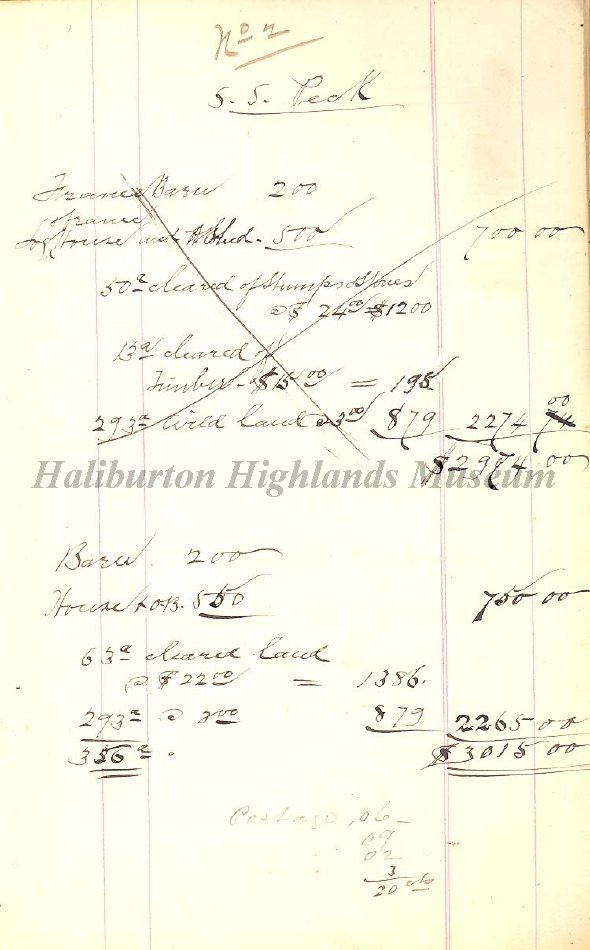 No 2
S. S. Peck
Frame Barn 200
frame
Log House and Shed. 500 700 00
50a cleared of Stumps & Stones
@ $ 24 00 = $1200
13a cleared of
Timber - @ $15 00 = 195
293a Wild land @ 3 00 879 2274 00 74
$2974.00
Haliburton Highlands Museum
Barn 200
House & O.B. 550 750 00
63a cleared land
@ $ 22 00 = 1386.
293a @ 3 00 879 2265 00
356a. $3015 00
Postage .06
09
02
3
20 cts